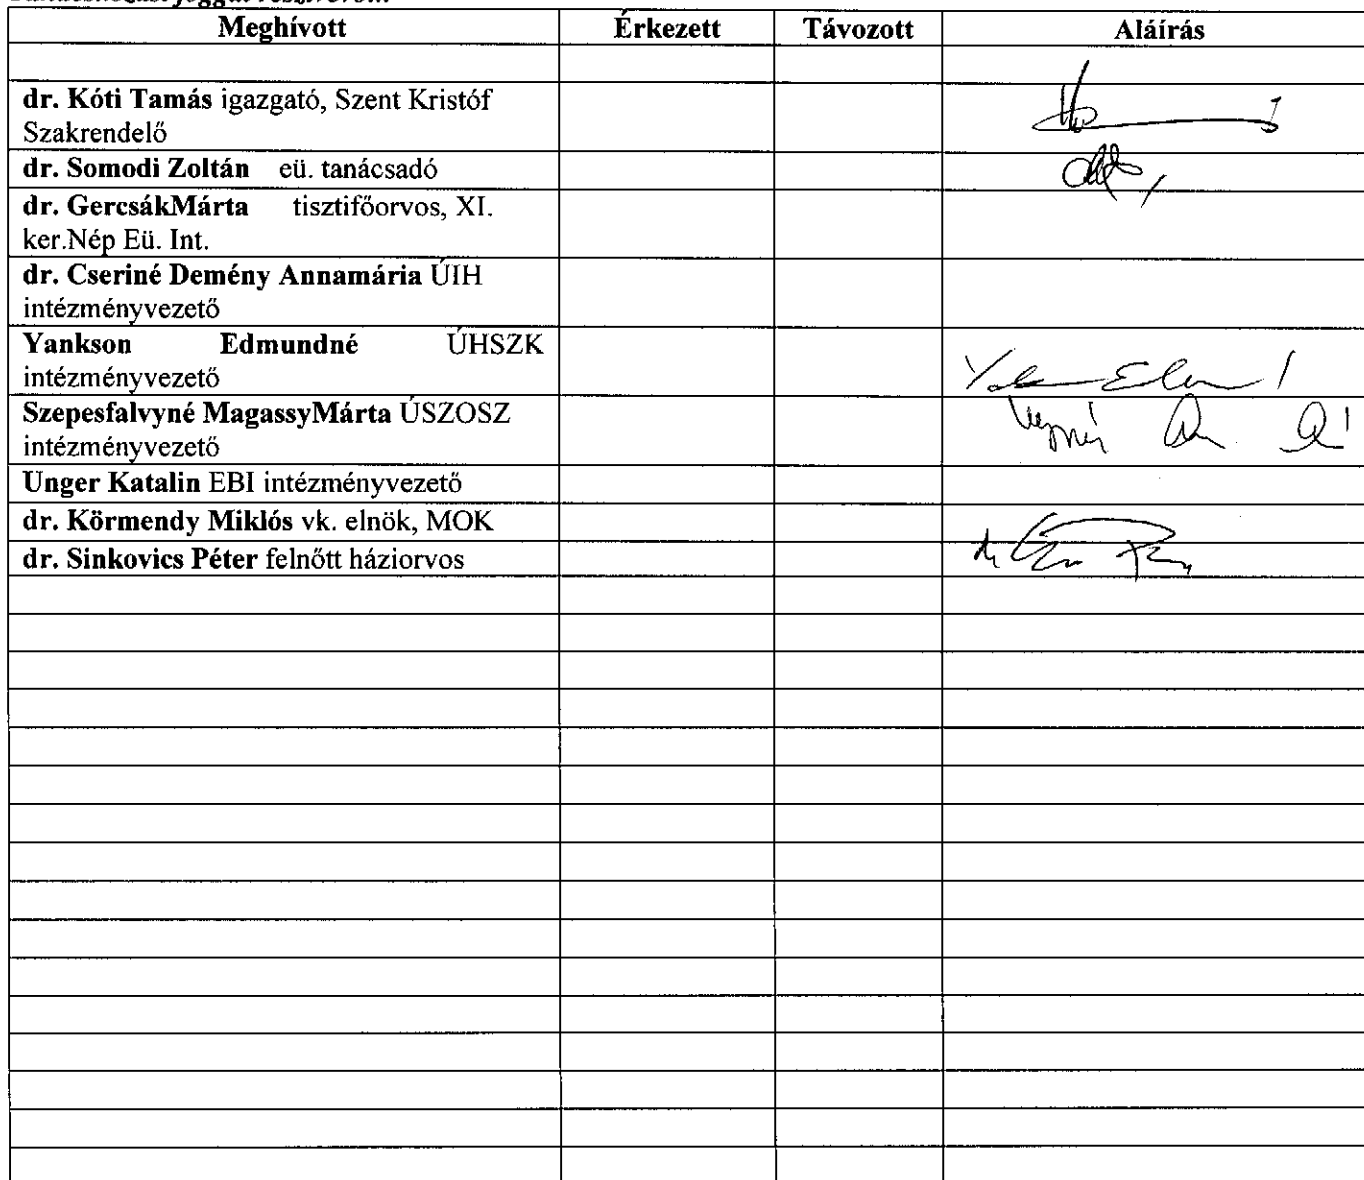 Meghívott Érkezett Távozott Aláírás
dr. Kóti Tamás igazgató, Szent Kristóf
Szakrendelő
dr. Somodi Zoltán eü. tanácsadó
dr. GercsákMárta tisztifőorvos, XI.
ker.Nép Eü. Int.
dr. Cseriné Demény Annamária ÚIH
intézményvezető
Yankson Edmundné ÚHSZK
intézményvezető
Szepesfalvyné MagassyMárta ÚSZOSZ
intézményvezető
Unger Katalin EBI intézményvezető
dr. Körmendy Miklós vk. elnök, MOK
dr. Sinkovics Péter felnőtt háziorvos